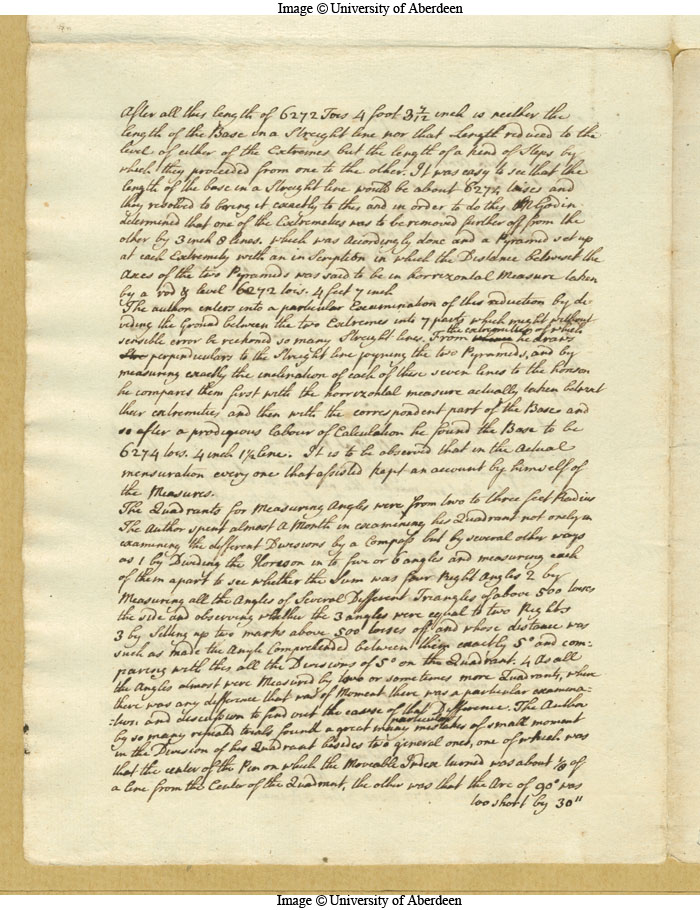 Image © University of Aberdeen
After all this length of 6272 Tois 4 foot 3 7/12 inch is neither the
length of the Base in a Streight line nor that Length reduced to the
level of either of the Extremes but the length of a kind of Steps by
which they proceeded from one to the other. It was easy to see that the
length of the base in a Streight line would be about 6274 toises and
they resolved to bring it exactly to this and in order to do this M Godin
determined that one of the Extremeties was to be removed further off from the
other by 3 inch 8 lines. which was accordingly done and a Pyramid set up
at each Extremity with an inscription in which the Distance betwixt the
Axes of the two Pyramids was said to be in horrizontal Measure taken
by a rod & level 6272 tois. 4 feet 7 inch
The author enters into a particular Examination of this reduction by de
viding the Ground between the two Extremes into 7 parts which might without
sensible error be reckoned so many Streight lines. From the extremities of which he draws
perpendiculars to the Streight line joyning the two Pyramids, and by
measuring exactly the inclination of each of these seven lines to the horison
he compares them first with the horrizontal measure actually taken betwixt
their extremities and then with the correspondent part of the Base and
so after a prodigious labour of Calculation he found the Base to be
6274 tois. 4 inch 1½ line. It is to be observed that in the Actual
mensuration every one that assisted kept an account by himself of
the Measures.
The Quadrants for Measuring Angles were from two to three feet Radius
The Author spent almost a Month in examining his Quadrant not onely in
examining the different Divisions by a Compass but by several other ways
as 1 by Dividing the Horeson in to five or 6 angles and measuring each
of them apart to see whether the Sum was four Right Angles 2 by
Measuring all the Angles of Several Different Triangles of above 500 toises
the side and observing whether the 3 angles were equal to two Rights
3 by Setting up two marks above 500 toises off and whose distance was
such as made the Angle Comprehended between them exactly 5° and com=
paring with this all the Divisions of 5° on the Quadrant. 4 As all
the Angles almost were Measured by two or sometimes more Quadrants, when
there was any difference that was of Moment there was a particular examina=
=tion and description to find out the cause of that Difference. The Author
by so many repeated trials found a great many particular mistakes of small moment
in the Division of his Quadrant besides two general ones, one of which was
that the center of the Pin on which the Moveable Index turned was about 1/8 of
a line from the Center of the Quadrant, the other was that the Arc of 90° was
too short by 30"
Image © University of Aberdeen